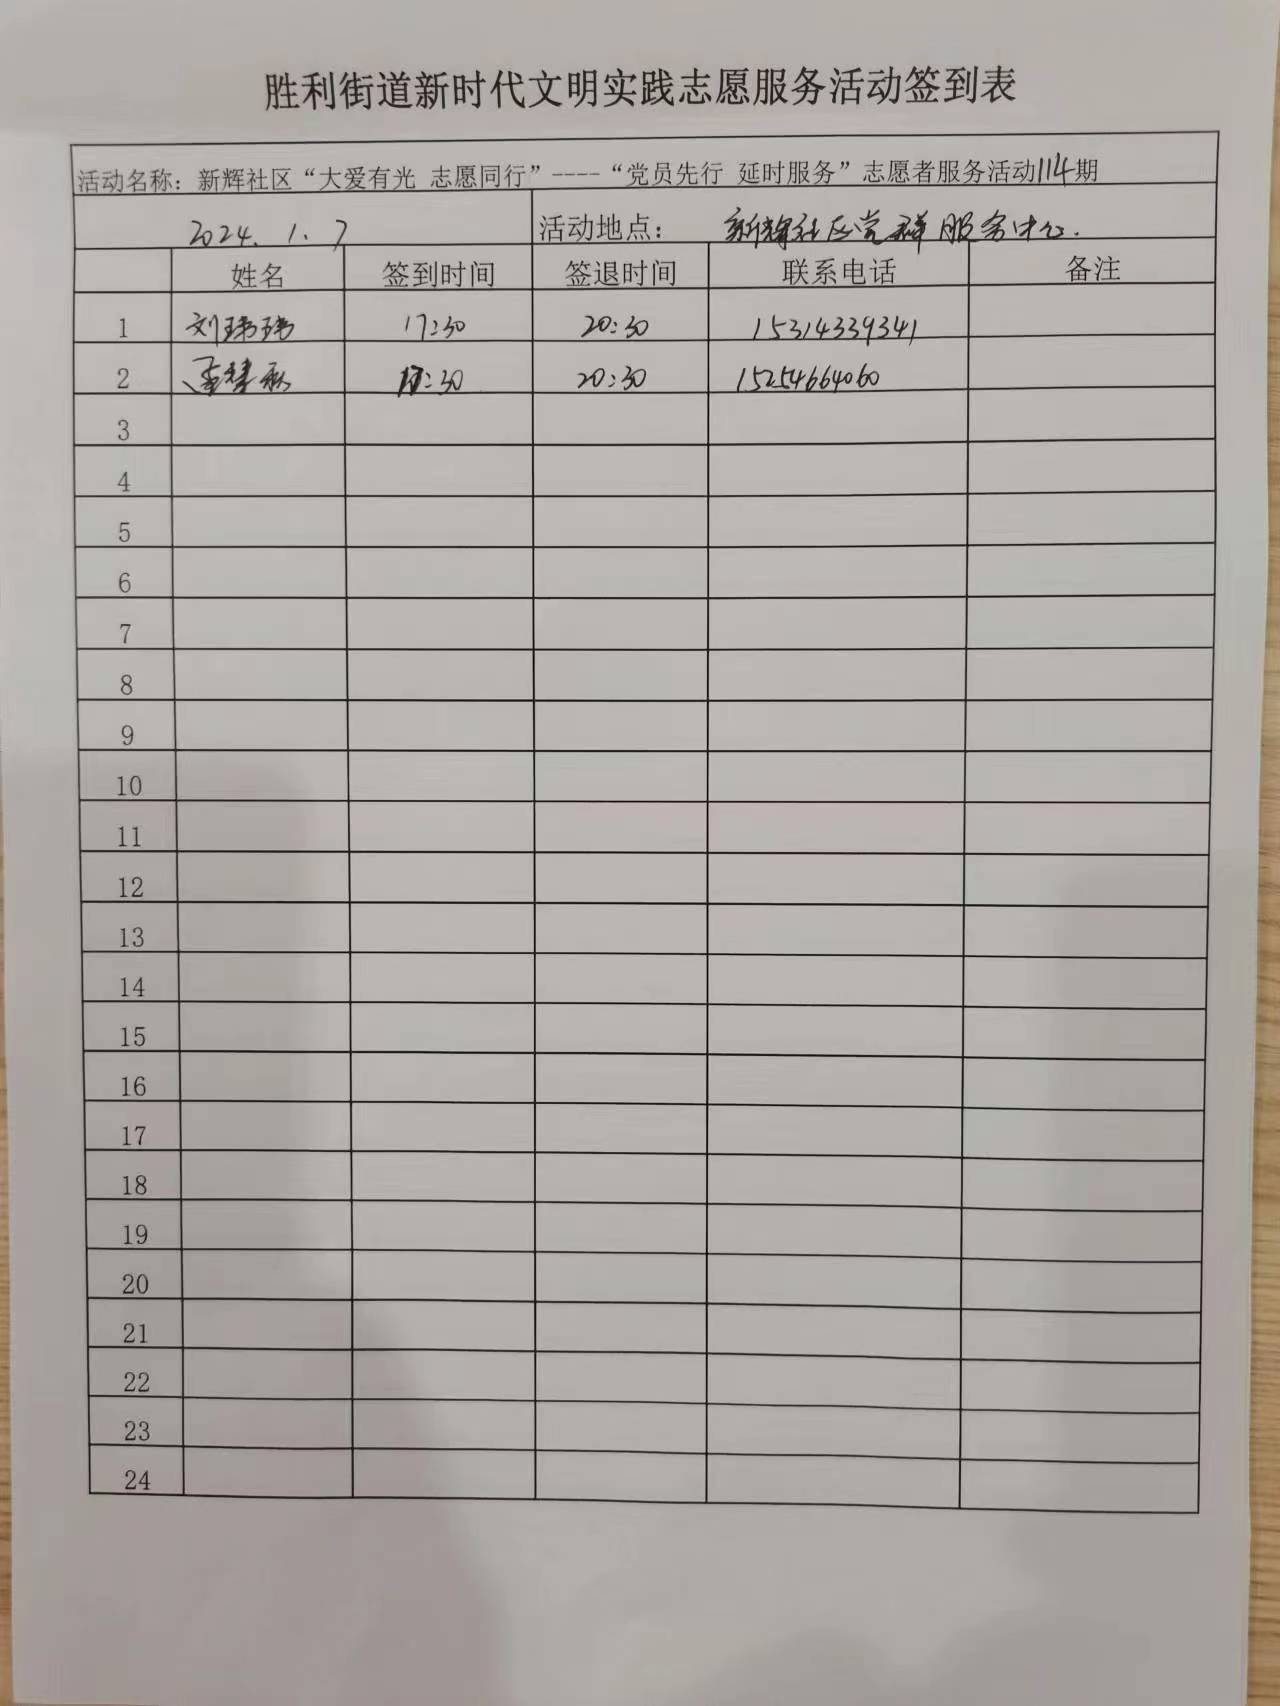 胜利街道新时代文明实践志愿服务活动签到表
活动名称：新辉社区“大爱有光 志愿同行”----“党员先行 延时服务”志愿者服务活动114期
2024.1.7 活动地点： 新辉社区党群服务中心.
姓名 签到时间 签退时间 联系电话 备注
1 刘玮玮 17:30 20:30 15314339341
2 17:30 20:30 15254664060
3
4
5
6
7
8
9
10
11
12
13
14
15
16
17
18
19
20
21
22
23
24